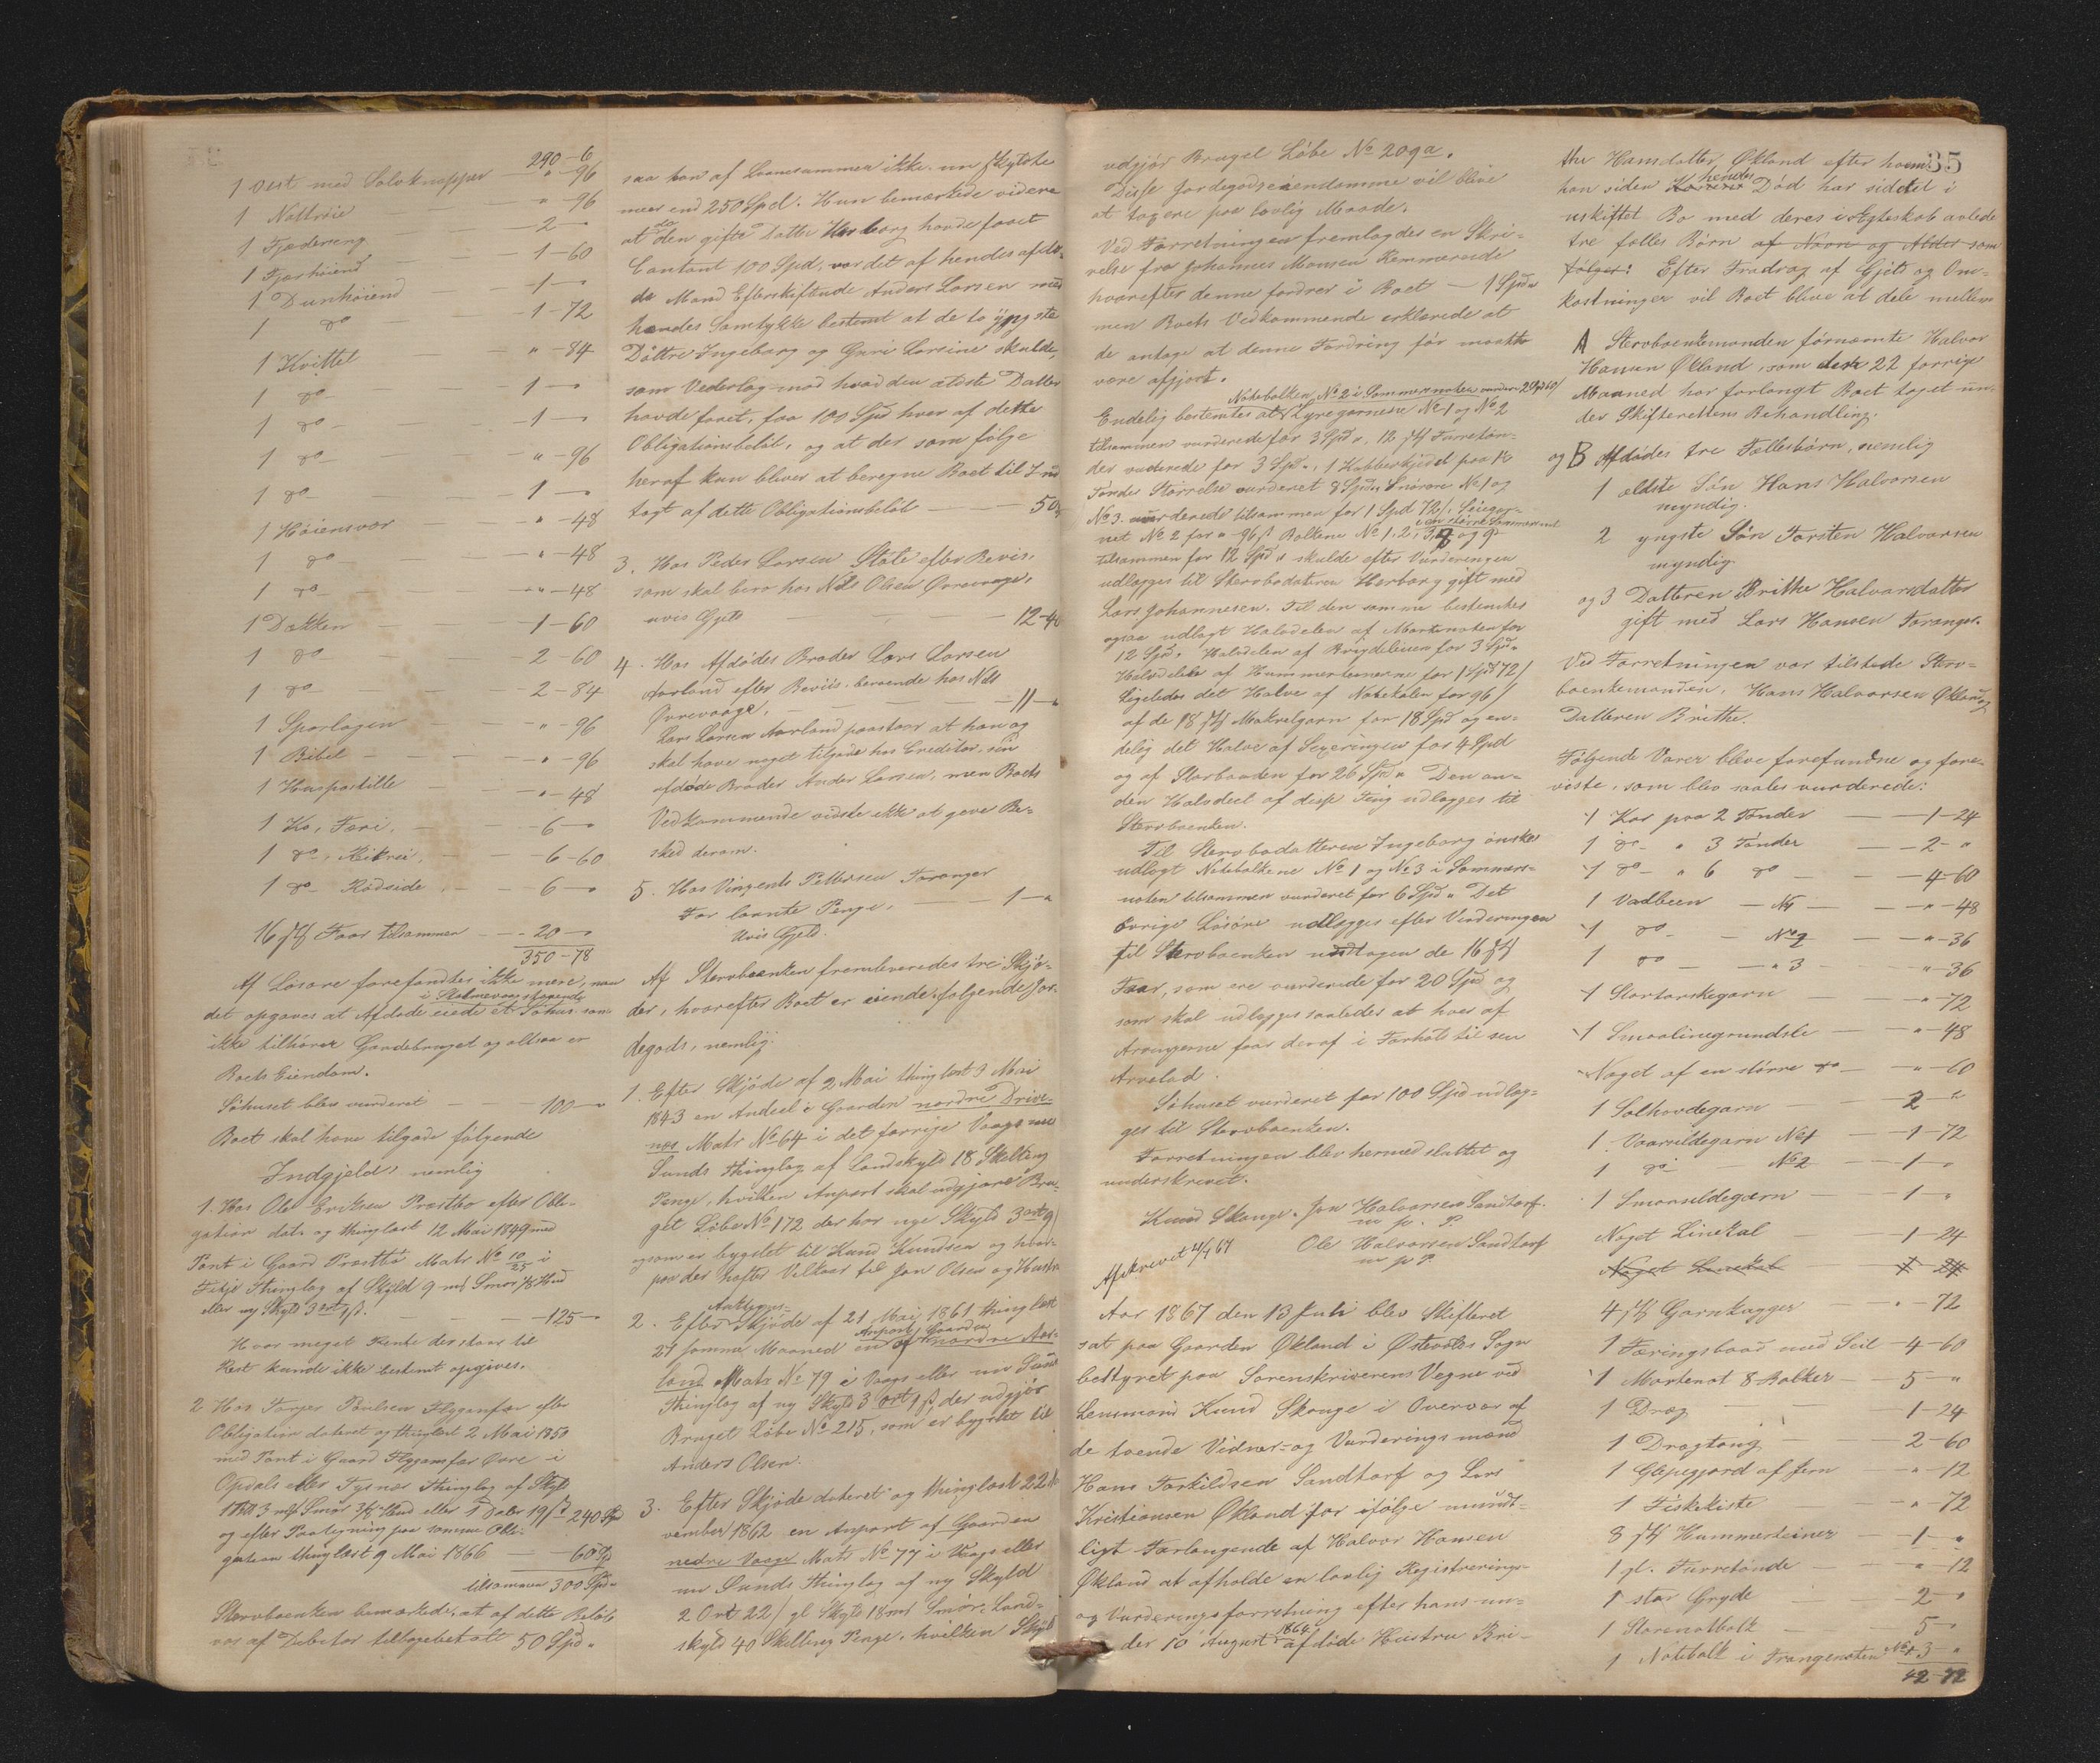 290-6
1 Vest med Sølvknapper " - 96
1 Nattrøie " - 96
1 Fjederseng 2 - "
1 Fjærhøiend 1 - 60
1 Dunhøiend 1 - "
1 do 1 - 72
1 Kvittel " - 84
1 do 1 - "
1 do 1 - "
1 do " - 96
1 do 1 - "
1 Høiensvar " - 48
1 do " - 48
1 do " - 48
1 Dækken 1 - 60
1 do 2 - 60
1 do 2 - 84
1 Sparlagen " - 96
1 Bibel " - 96
1 Huspostille " - 48
1 Ko, Færi, 6 - "
1 do, Kikrei, 6 - 60
1 do Rødside 6 - "
16 stk Faar tilsammen 20 - "
350 - 78
Af Løsøre forefandtes ikke mere, men
i Stolmevaag staaende
det opgaves at Afdøde eiede et Søhus som
ikke tilhører Gaardebruget og altsaa er
Boets Eiendom.
Søhuset blev vurderet 100 - "
Boet skal have tilgode følgende
Indgjeld, nemlig
1. Hos Ole Eriksen Præstbø efter Obli-
gation dat. og thinglæst 12 Mai 1849 med
Pant i Gaard Præstbø Matr No 10/25 i
Fitje Thinglag af Skyld 9 mk Smør 1/8 Hud
eller ny Skyld 3 ort 1 ß. 125 - "
Hvor meget Rente der staar til
Rest kunde ikke bestemt opgives.
2 Hos Torger Poulsen Flygansfær efter
Obligation dateret og thinglæst 2. Mai 1850
med Pant i Gaard Flygansfær Øvre i
Opdals eller Tysnæs Thinglag af Skyld
Smør Hud eller 1 Daler 19 ß 240 Spd
og efter Paategning paa samme Obli-
gation thinglæst 9 Mai 1866 60 Sp
tilsammen 300 Spd "
Stervboenken bemærkede, at af dette Beløb
var af Debitor tilbagebetalt 50 Spd "
saa han af Laanesummen ikke nu skyldte
mere end 250 Spd. Hun bemærkede videre
at den gifte Datter Herborg havde faaet
Contant 100 Spd, var det af hendes afdø-
de Mand Efterskiftude Anders Larsen med
hendes Samtykke bestemt at de to yngste
Døttre Ingeborg og Guri Larsine skulde,
som Vederlag mod hvad den ældste Datter
havde faaet, faa 100 Spd hver af dette
Obligationsbeløb, og at der som følge
heraf kun bliver at beregne Boet til Ind
tægt af dette Obligationsbeløb 50
3. Hos Peder Larsen Stole efter Bevis,
som skal bero hos Nils Olsen Øvrevaage,
uvis Gjeld 12 - 40
4. Hos Afdødes Broder Lars Larsen
Aarland efter Beviis, beroende hos Nils
Øvrevaage, 11 - "
Lars Larsen Aarland paastaar at han og
skal have noget tilgode hos Creditor, sin
afdøde Broder Anders Larsen, men Boets
Vedkommende vidste ikke at gave Be-
sked derom.
5. Hos Vingents Pettersen Toranger
For laante Penge, 1 - "
Uvis Gjeld.
Af Stervboenken fremleveredes tre Skjø-
der, hvorefter Boet er eiende følgende Jor-
degods, nemlig:
1. Efter Skjøde af 2 Mai thinglæst 3 Mai
1843 en Andeel i Gaarden nordre Drive-
næs Matr No 64 i det forrige Vaags nu
Sunds Thinglag af Landskyld 18 Skilling
Penge, hvilken Anpart skal udgjøre Bru-
get Løbe No 172 der har nye Skyld 3 ort 9
og som er bygslet til Knud Knudsen og hvor-
paa der hæfter Vilkaar til Jon Olsen og Hustru
2. Efter Auktions-Skjøde af 21 Mai 1861 thinglæst
27 samme Maaned en Anpart af Gaarden nordre Aar-
land Matr No 79 i Vaags eller nu Sunds
Thinglag af ny Skyld 3 ort 1 ß, der udgjør
Bruget Løbe No 215, som er bygslet til
Anders Olsen.
3. Efter Skjøde dateret og thinglæst 22 No-
vember 1862 en Anpart af Gaarden
nedre Vaage Matr No 77 i Vaags eller
nu Sunds Thinglag af ny Skyld
2 Ort 22 ß gl Skyld 18 mk Smør, Land-
skyld 40 Skilling Penge, hvilken Skyld
udgjør Bruget Løbe No 209a.
Disse Jordegodseiendomme vil blive
at taxere paa lovlig Maade.
Ved Forretningen fremlagdes en Skri-
velse fra Johannes Monsen Remmereide
hvorefter denne fordrer i Boet 1 Spd "
men Boets Vedkommende erklærede at
de antage at denne Fordring før maatte
være afgjort.
Notebolken No 2 i Sommernoten vurderet 2 Spd 60 ß
Endelig bestemtes at Lyregarnene No 1 og No 2
tilsammen vurderede for 3 Spd ", 12 stk Turretøn-
der vurderede for 3 Spd ", 1 Kobberkjedel paa 1/2
Tøndes Størrelse vurderet 8 Spd " No 1 og
No 3 vurderede tilsammen for 1 Spd 72 ß, Seiegar-
net No 2 for " 96 ß Bolkene No 1, 2, 3, 8 og 9 i en større Sommernot
tilsammen for 12 Spd " skulde efter Vurderingen
udlægges til Stervbodatteren Herborg gift med
Lars Johannesen. Til den samme bestemtes
ogsaa udlagt Halvdelen af Mortenoten for
12 Spd. Halvdelen af for 3 Spd "
Halvdelen af Hummerteinerne for 1 Spd 72 ß
Ligeledes det Halve af Notekolen for 96 ß
af de 18 stk Makrelgarn for 18 Spd og en-
delig det Halve af Sexeringen for 4 Spd
og af Storbaaden for 26 Spd " Den an-
den Halvdeel af disse Ting udlægges til
Stervboenken.
Til Stervbodatteren Ingeborg ønskes
udlagt Notebolkene No 1 og No 3 i Sommer-
noten tilsammen vurderet for 6 Spd " Det
øvrige Løsøre udlægges efter Vurderingen
til Stervboenken undtagen de 16 stk
Faar, som ere vurderede for 20 Spd og
som skal udlægges saaledes at hver af
Arvingerne faar deraf i Forhold til sin
Arvelod.
Søhuset vurderet for 100 Spd udlæg-
ges til Stervboenken.
Forretningen blev hermed sluttet og
underskrevet.
Knud Skauge. Jon Halvorsen Sandtorf.
m. p. P.
Ole Halvorsen Sandtorf
m p P.
Afskrevet 21/9 67
Aar 1867 den 13 Juli blev Skifteret
sat paa Gaarden Økland i Østevolds Sogn
bestyret paa Sorenskriverens Vegne ved
Lensmand Knud Skauge i Overvær af
de tvende Vidner og Vurderingsmænd
Hans Torkildsen Sandtorf og Lars
Kristiansen Økland for ifølge mundt-
ligt Forlangende af Halvor Hansen
Økland at afholde en lovlig Registrerings-
og Vurderingsforretning efter hans un-
der 10 August 1864 afdøde Hustru Bri-
35
the Hansdatter Økland efter hvem
han siden hendes Død har siddet i
uskiftet Bo med deres i Egteskab avlede
tre fælles Børn af Navn og Alder som
følger: Efter Fradrag af Gjeld og Om-
kostninger vil Boet blive at dele mellem
A Stervboenkemanden førnævnte Halvor
Hansen Økland, som den 22 forrige
Maaned har forlangt Boet taget un-
der Skifterettens Behandling.
og B Afdødes tre Fællesbørn, nemlig
1 ældste Søn Hans Halvorsen
myndig.
2 yngste Søn Torsten Halvorsen
myndig.
og 3 Datteren Brithe Halvorsdatter
gift med Lars Hansen Toranger.
Ved Forretningen var tilstede Sterv-
boenkemanden, Hans Halvorsen Økland og
Datteren Brithe.
Følgende Varer bleve forefundne og fore-
viste, som blev saales vurderede:
1 Kar paa 2 Tønder 1 - 24
1 do " 3 Tønder 2 - "
1 do " 6 do 4 - 60
1 Vadbeen No 1 " - 48
1 do No 2 " - 36
1 do " 3 " - 36
1 Stortorskegarn " - 72
1 Smaalinegrundsle " - 48
Noget af en større do " - 60
1 Salhovdegarn 2 - "
1 Vaarsildegarn No 1 1 - 72
1 do No 2 1 - "
1 Smaasildegarn 1 - "
Noget Linekal 1 - 24
Noget Linekal 1 - 24
4 stk Garnkagger " - 72
1 Færingsbaad med Seil 4 - 60
1 Mortenot 8 Bolker 5 - "
1 Dræg 1 - 24
1 Drægtoug 2 - 60
1 Glipegjord af Jern " - 12
1 Fiskekiste " - 72
8 stk Hummerteiner 1 - "
1 gl. Turretønde " - 12
1 stor Gryde 2 - "
1 Storenotbolk 5 - "
1 Notebolk i Trangenoten No 1 3 - "
42 - 72